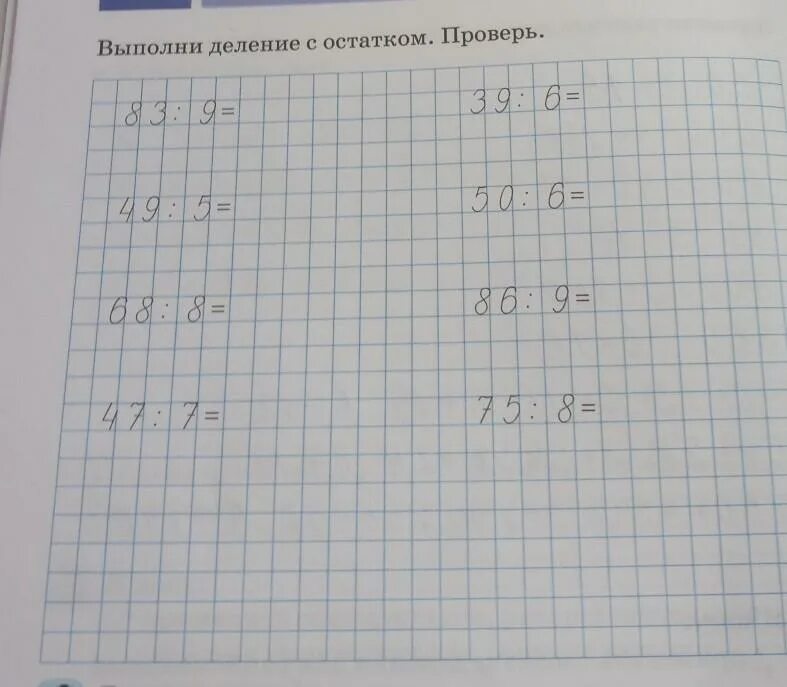 Выполни деление с остатком. Проверь.
83: 9= 39: 6=
49: 5= 50: 6=
68: 8= 86: 9=
47: 7= 75: 8=